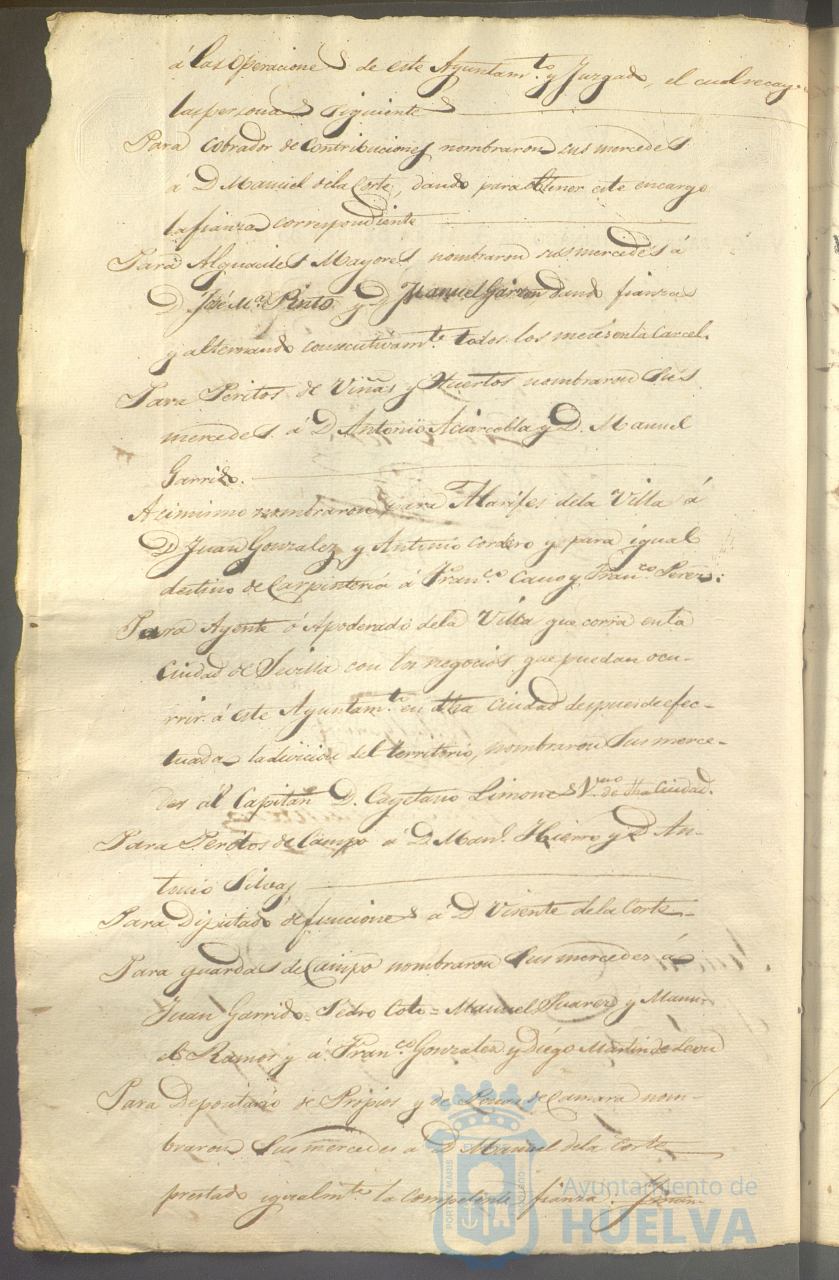 á las operaciones de este Ayuntam.to y Juzgado, el cual recayó
las personas siguientes
Para Cobrador de Contribuciones nombraron sus mercedes
á D Manuel de la Corte, dando para obtener este encargo
la fianza correspondiente
Para Alguaciles Mayores nombraron sus mercedes á
D José M.a Pinto y D Manuel Garzon dando fianzas
y alternando consecutivam.te todos los meses en la Carcel.
Para Peritos de Viñas y Huertos nombraron sus
mercedes á D Antonio y D. Manuel
Garrido.
Acimismo nombraron para Alarifes de la Villa á
D Juan Gonzalez y Antonio Cordero y para igual
destino de Carpinteria á Fran.co Cano y Fran.co Perez:
Para Agente ó Apoderado de la Villa que corra en la
Ciudad de Sevilla con los negocios que puedan ocu-
rrir á este Ayuntam.to en dha Ciudad despues de efec-
tuada la divicion del territorio, nombraron sus merce-
des al Capitan D. Cayetano Limones V.no de dha Ciudad.
Para Peritos de Campo á D. Man.l Hierro y D An-
tonio Silva
Para Diputado de funciones á D Visente de la Corte.
Para guardas de Campo nombraron sus mercedes á
Juan Garrido = Pedro Coto = Manuel Suarez y Manu-
el Ramos y á Fran.co Gonzalez y Diego Martin de Leon
Para Depositario de Propios y de Penas de Camara nom-
braron sus mercedes a D Manuel de la Corte
prestado igualm.te la competente fianza.
Ayuntamiento de
HUELVA